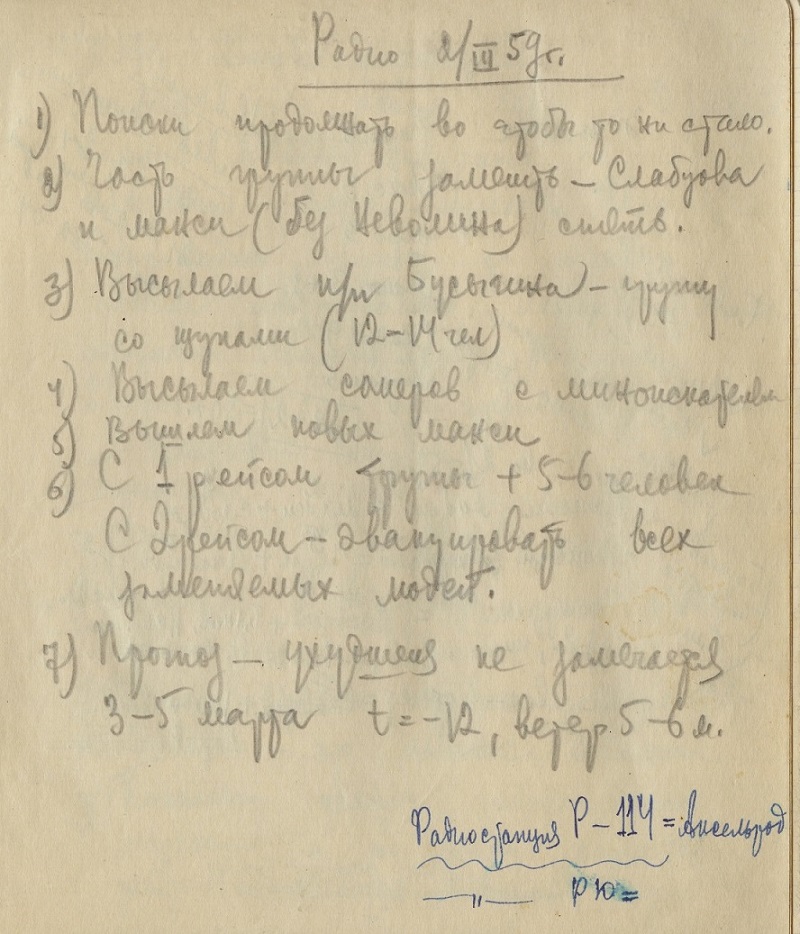 Радио 2/III 59г.
1) Поиски продолжать во чтобы то ни стало.
2) Часть группы заменить – Слабцова
и манси (без Неволина) снять.
3) Высылаем п/п Бусыгина – группу
со щупами (12–14 чел)
4) Высылаем саперов с миноискателем
5) Вышлем новых манси
6) С 1 рейсом группы + 5–6 человек
С 2 рейсом – эвакуировать всех
заменяемых людей.
7) Прогноз – ухудшения не замечается
3–5 марта t = –12, ветер 5–6 м.
Радиостанция Р – 114 = Аксельрод
—〃— РЮ =